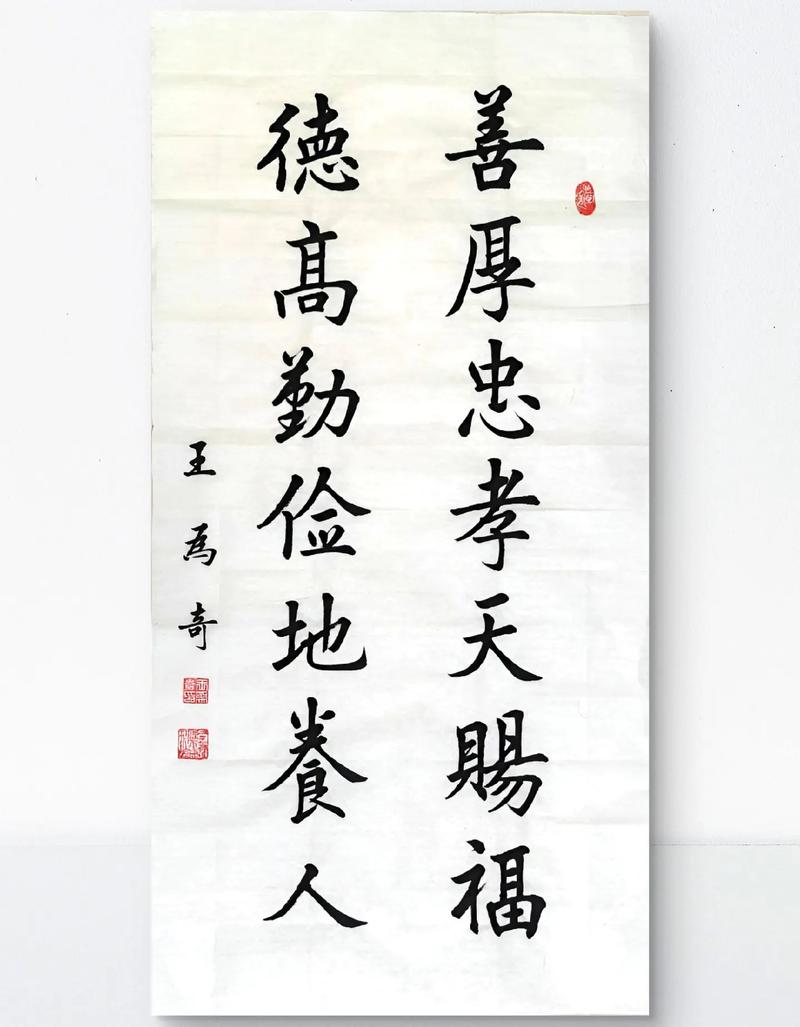 善厚忠孝天賜福
徳高勤俭地養人
王為奇